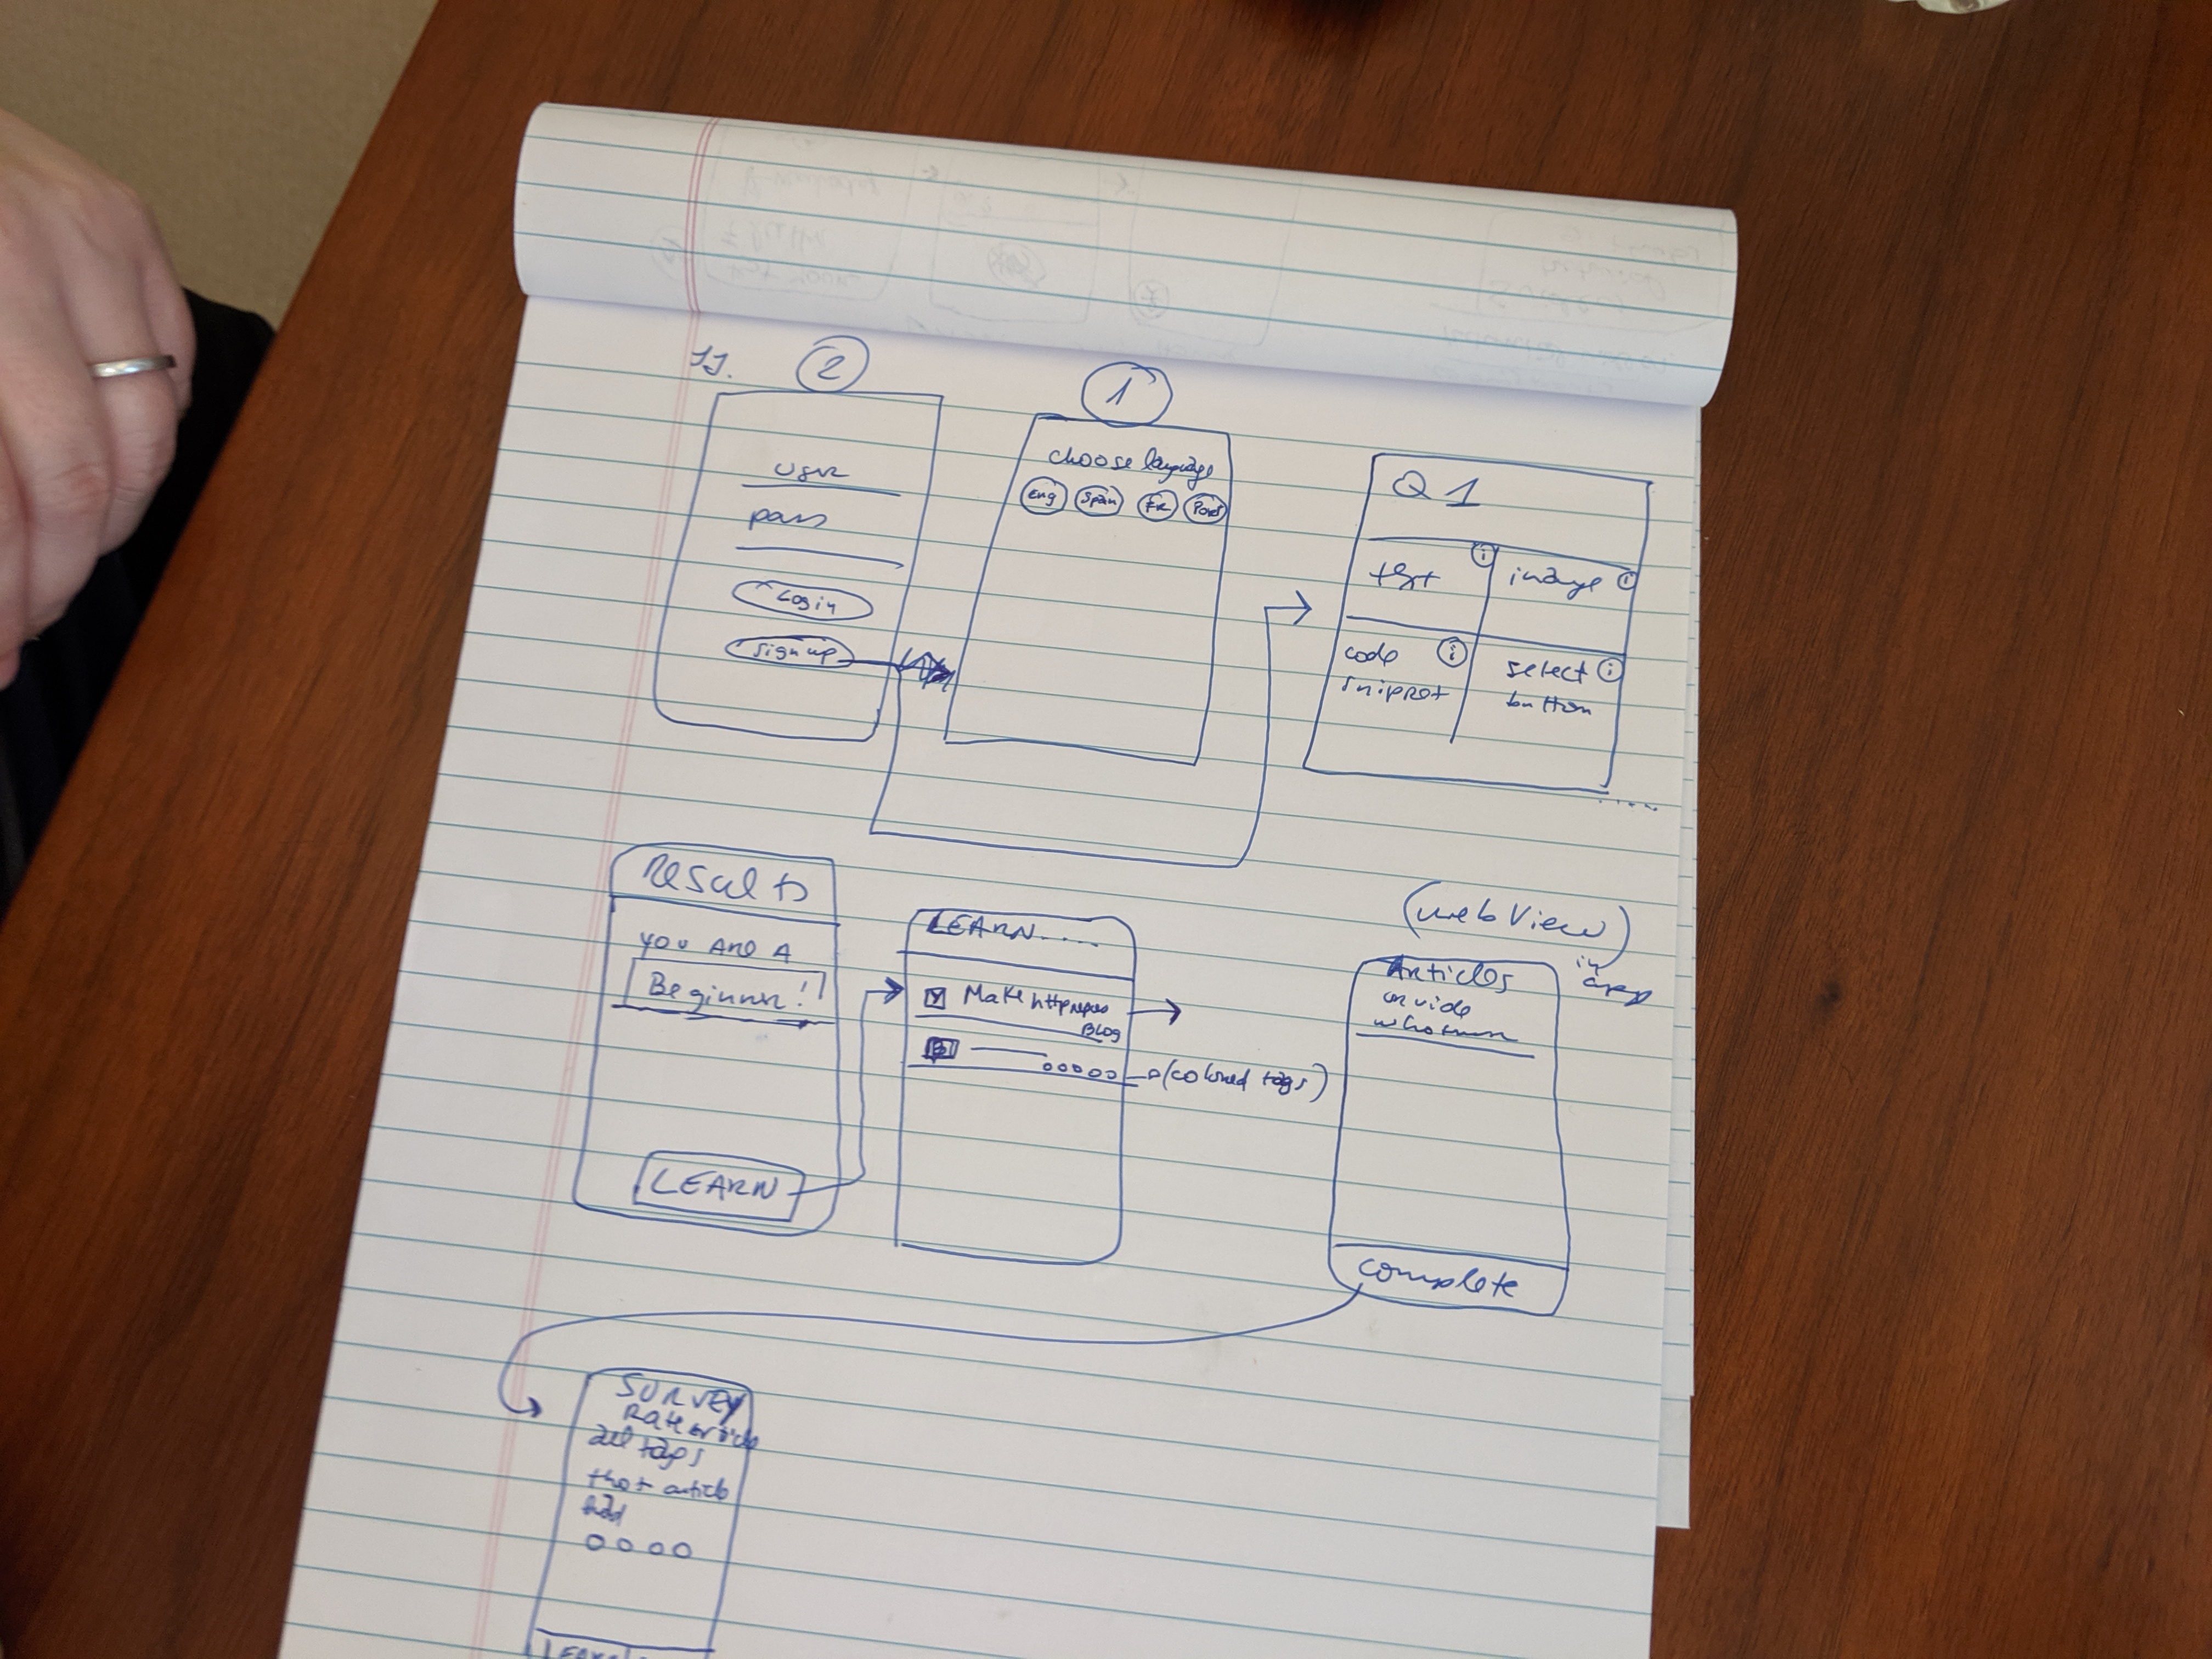 2
user
pass
Login
sign up
1
choose language
Eng
Span
FR
Q1
text
i
image
i
code
i
snippet
select
i
button
.....
Results
you are a
Beginner!
LEARN
LEARN.....
Make http reques
Blog
(colored tags)
(web View)
in
app
Articles
or video
Complete
SURVEY
Rate article
all tags
that article
had
LEARN